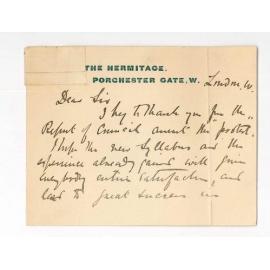 THE HERMITAGE,
PORCHESTER GATE, W. London, W.
Dear Sir
I beg to thank you for the
Report of Council anent the protest.
I hope the new Syllabus and the
experience already gained will give
everybody entire satisfaction, and
lead to great success in